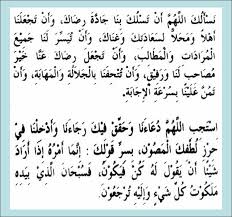 نَسْأَلُكَ اللَّهُمَّ أَنْ تَسْلُكَ بِنَا جَادَّةَ رِضَاكَ، وَأَنْ تَجْعَلَنَا
أَهْلاً وَمَحَلاًّ لِسَعَادَتِكَ وَغِنَاكَ، وَأَنْ تُيَسِّرَ لَنَا جَمِيعَ
الْمُرَادَاتِ وَالْمَطَالِبِ، وَأَنْ تَجْعَلَ رِضَاكَ عَنَّا خَيْرَ
مُصَاحِبٍ لَنَا وَرَفِيقٍ، وَأَنْ تُتْحِفَنَا بِالْجَلَالَةِ وَالْمَهَابَةِ، وَأَنْ
تَمُنَّ عَلَيْنَا بِسُرْعَةِ الْإِجَابَةِ.
اسْتَجِبِ اللَّهُمَّ دُعَاءَنَا وَحَقِّقْ فِيكَ رَجَاءَنَا وَأَدْخِلْنَا فِي
حِرْزِ لُطْفِكَ الْمَصُونِ، بِسِرِّ قَوْلِكَ : إِنَّمَا أَمْرُهُ إِذَا أَرَادَ
شَيْئًا أَنْ يَقُولَ لَهُ كُنْ فَيَكُونُ، فَسُبْحَانَ الَّذِي بِيَدِهِ
مَلَكُوتُ كُلِّ شَيْءٍ وَإِلَيْهِ تُرْجَعُونَ.